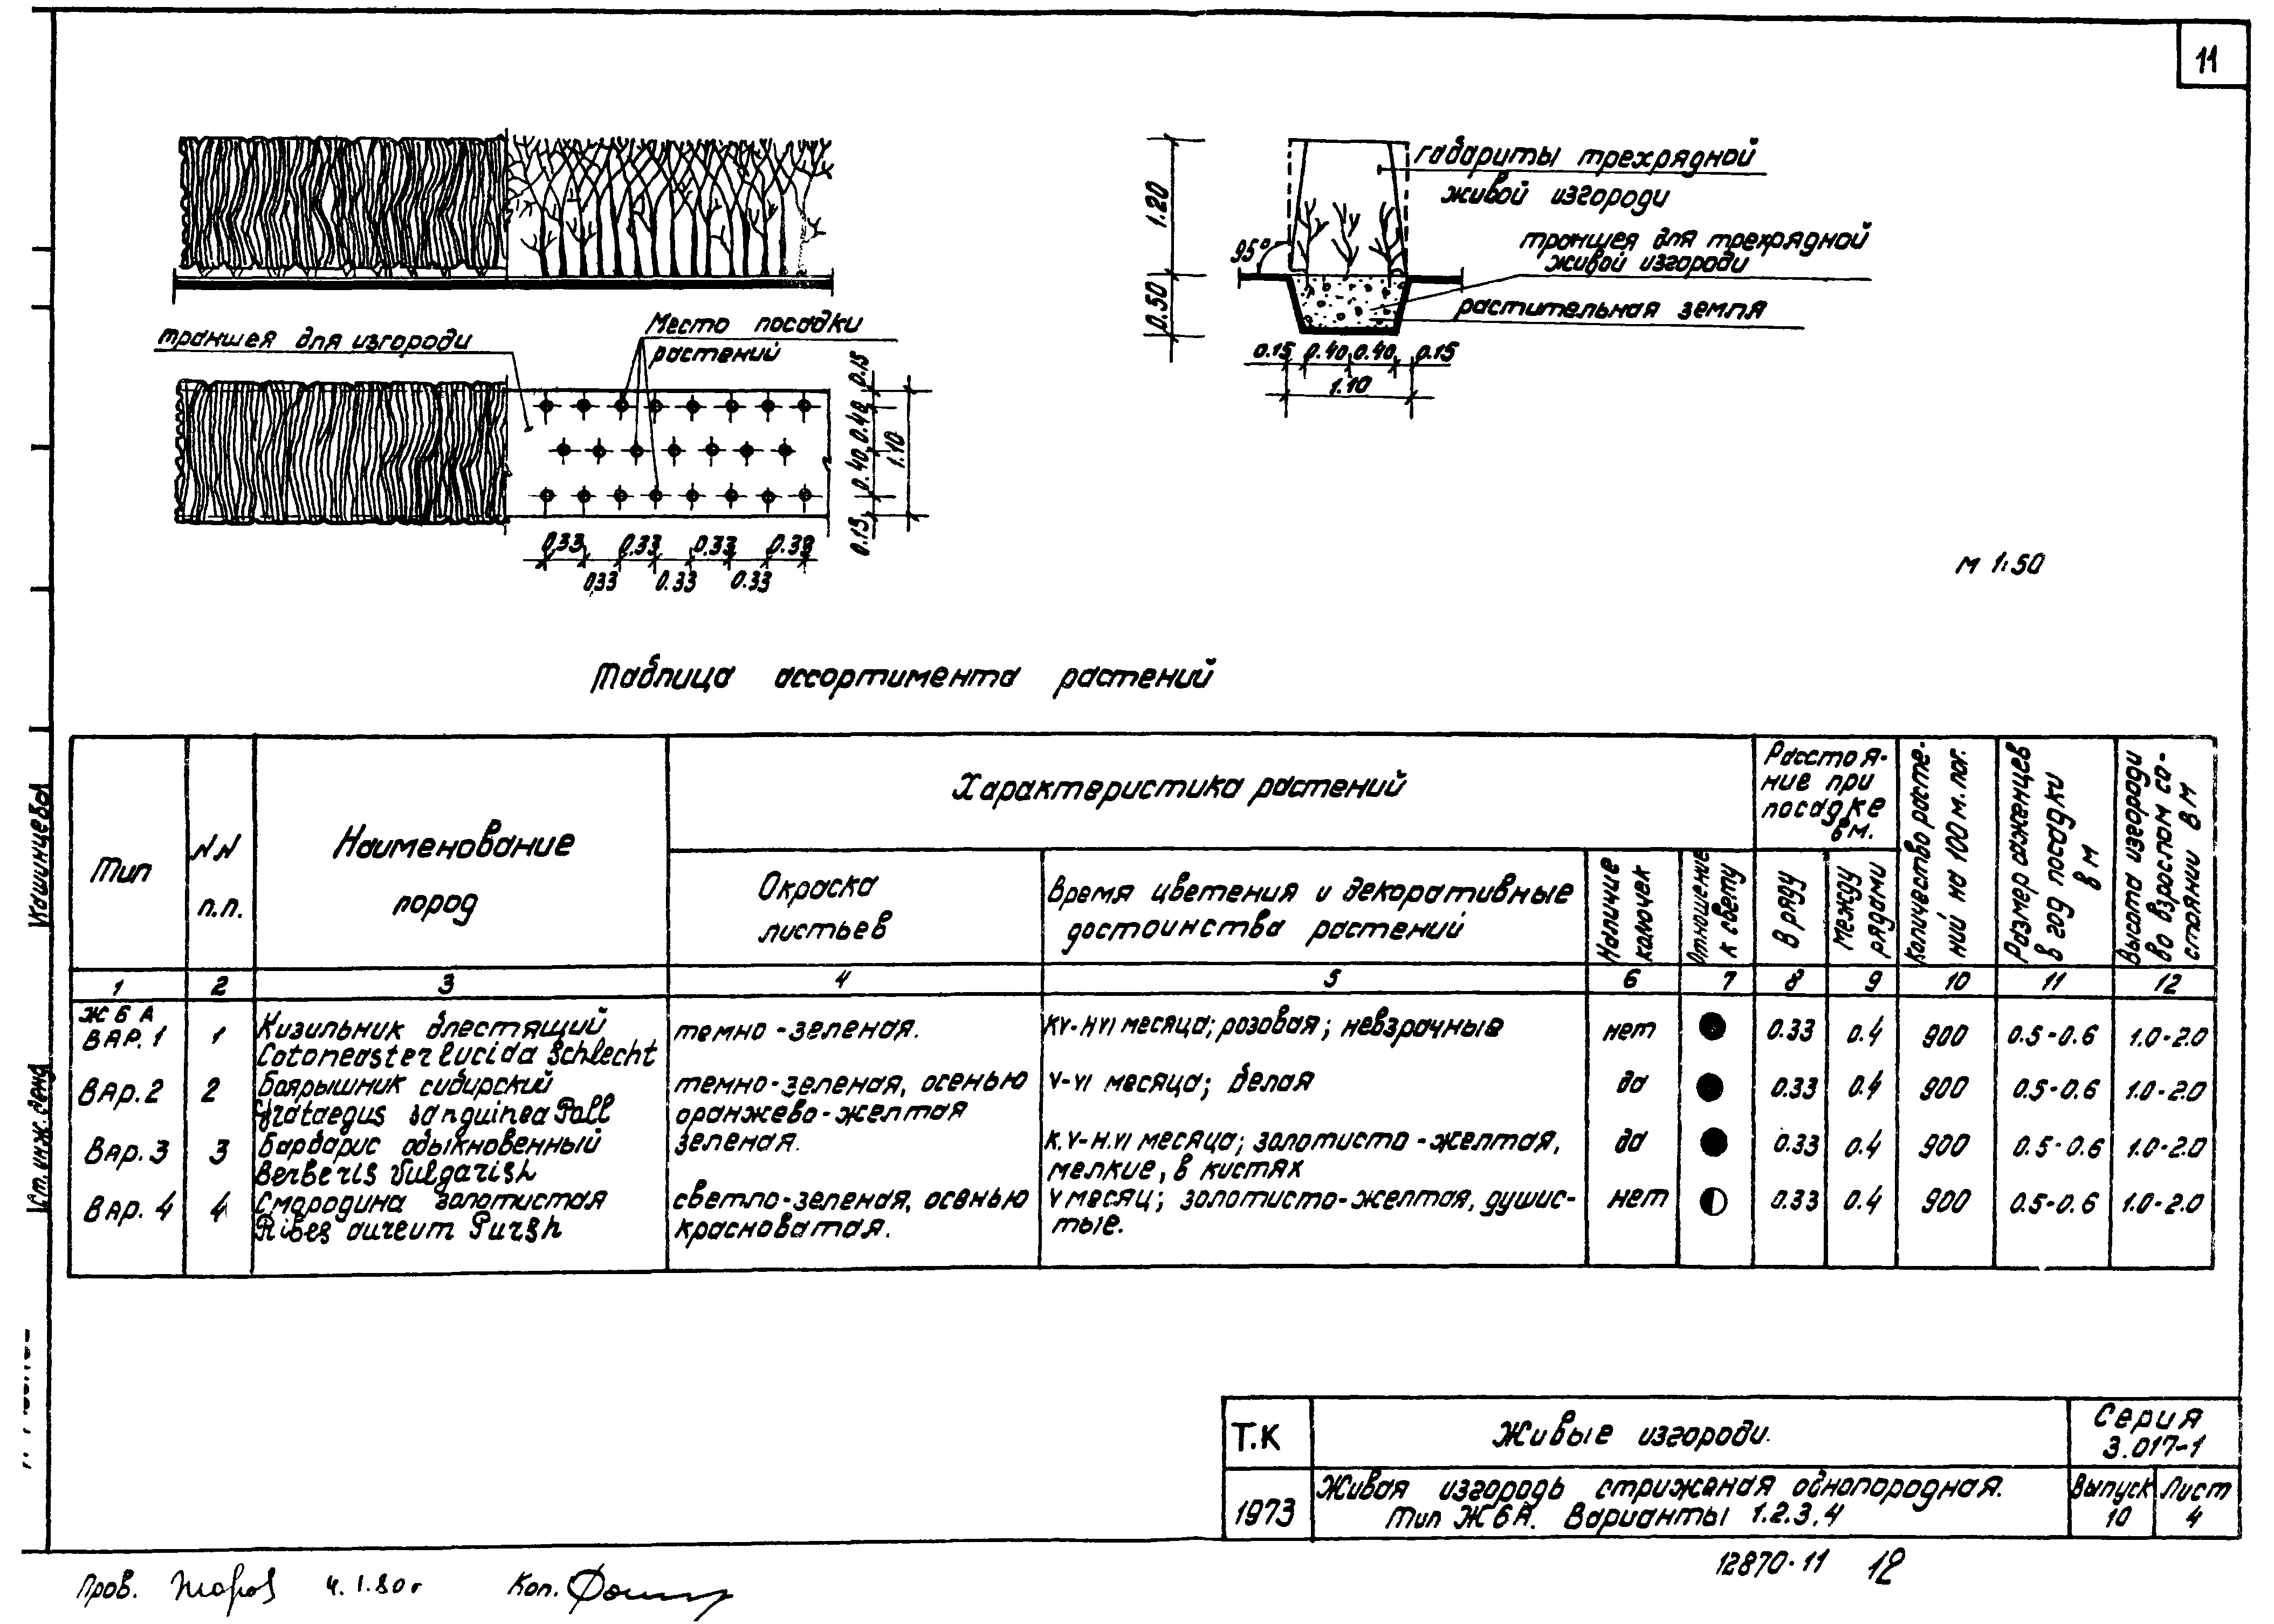 11
габариты трехрядной
живой изгороди
траншея для трехрядной
живой изгороди
растительная земля
1.20
0.50
95°
0.15 0.40 0.40 0.15
1.10
траншея для изгороди
Место посадки
растений
0.15
0.40
0.40
0.15
1.10
0.33 0.33 0.33 0.33
0.33 0.33 0.33
М 1:50
Таблица ассортимента растений
Тип
N.N
п.п.
Наименование
пород
Характеристика растений
Окраска
листьев
Время цветения и декоративные
достоинства растений
Наличие
колючек
Отношение
к свету
Расстоя-
ние при
посадке
в м.
В ряду
Между
рядами
Количество расте-
ний на 100 м. пог.
Размер саженцев
в год посадки
в м
Высота изгороди
во взрослом со-
стоянии в м
1 2 3 4 5 6 7 8 9 10 11 12
Ж 6 А
ВАР. 1 1 Кизильник блестящий темно-зеленая. KV-HVI месяца; розовая; невзрачные нет 0.33 0.4 900 0.5-0.6 1.0-2.0
Cotoneaster lucida Schlecht
ВАР. 2 2 Боярышник сибирский темно-зеленая, осенью V-VI месяца; белая да 0.33 0.4 900 0.5-0.6 1.0-2.0
Grataegus sanguinea Pall оранжево-желтая
ВАР. 3 3 Барбарис обыкновенный зеленая. K.V-H.VI месяца; золотисто-желтая, да 0.33 0.4 900 0.5-0.6 1.0-2.0
Berberis Vulgarish мелкие, в кистях
ВАР. 4 4 Смородина золотистая светло-зеленая, осенью V месяц; золотисто-желтая, душис- нет 0.33 0.4 900 0.5-0.6 1.0-2.0
Ribes aureum Pursh красноватая. тые.
Т.К Живые изгороди. Серия
3.017-1
1973 Живая изгородь стриженая однопородная.
Тип Ж6А. Варианты 1.2.3.4
Выпуск Лист
10 4
12870-11 12
Пров. 4.1.80 г Коп.
Кашинцева
Ст. инж. денд